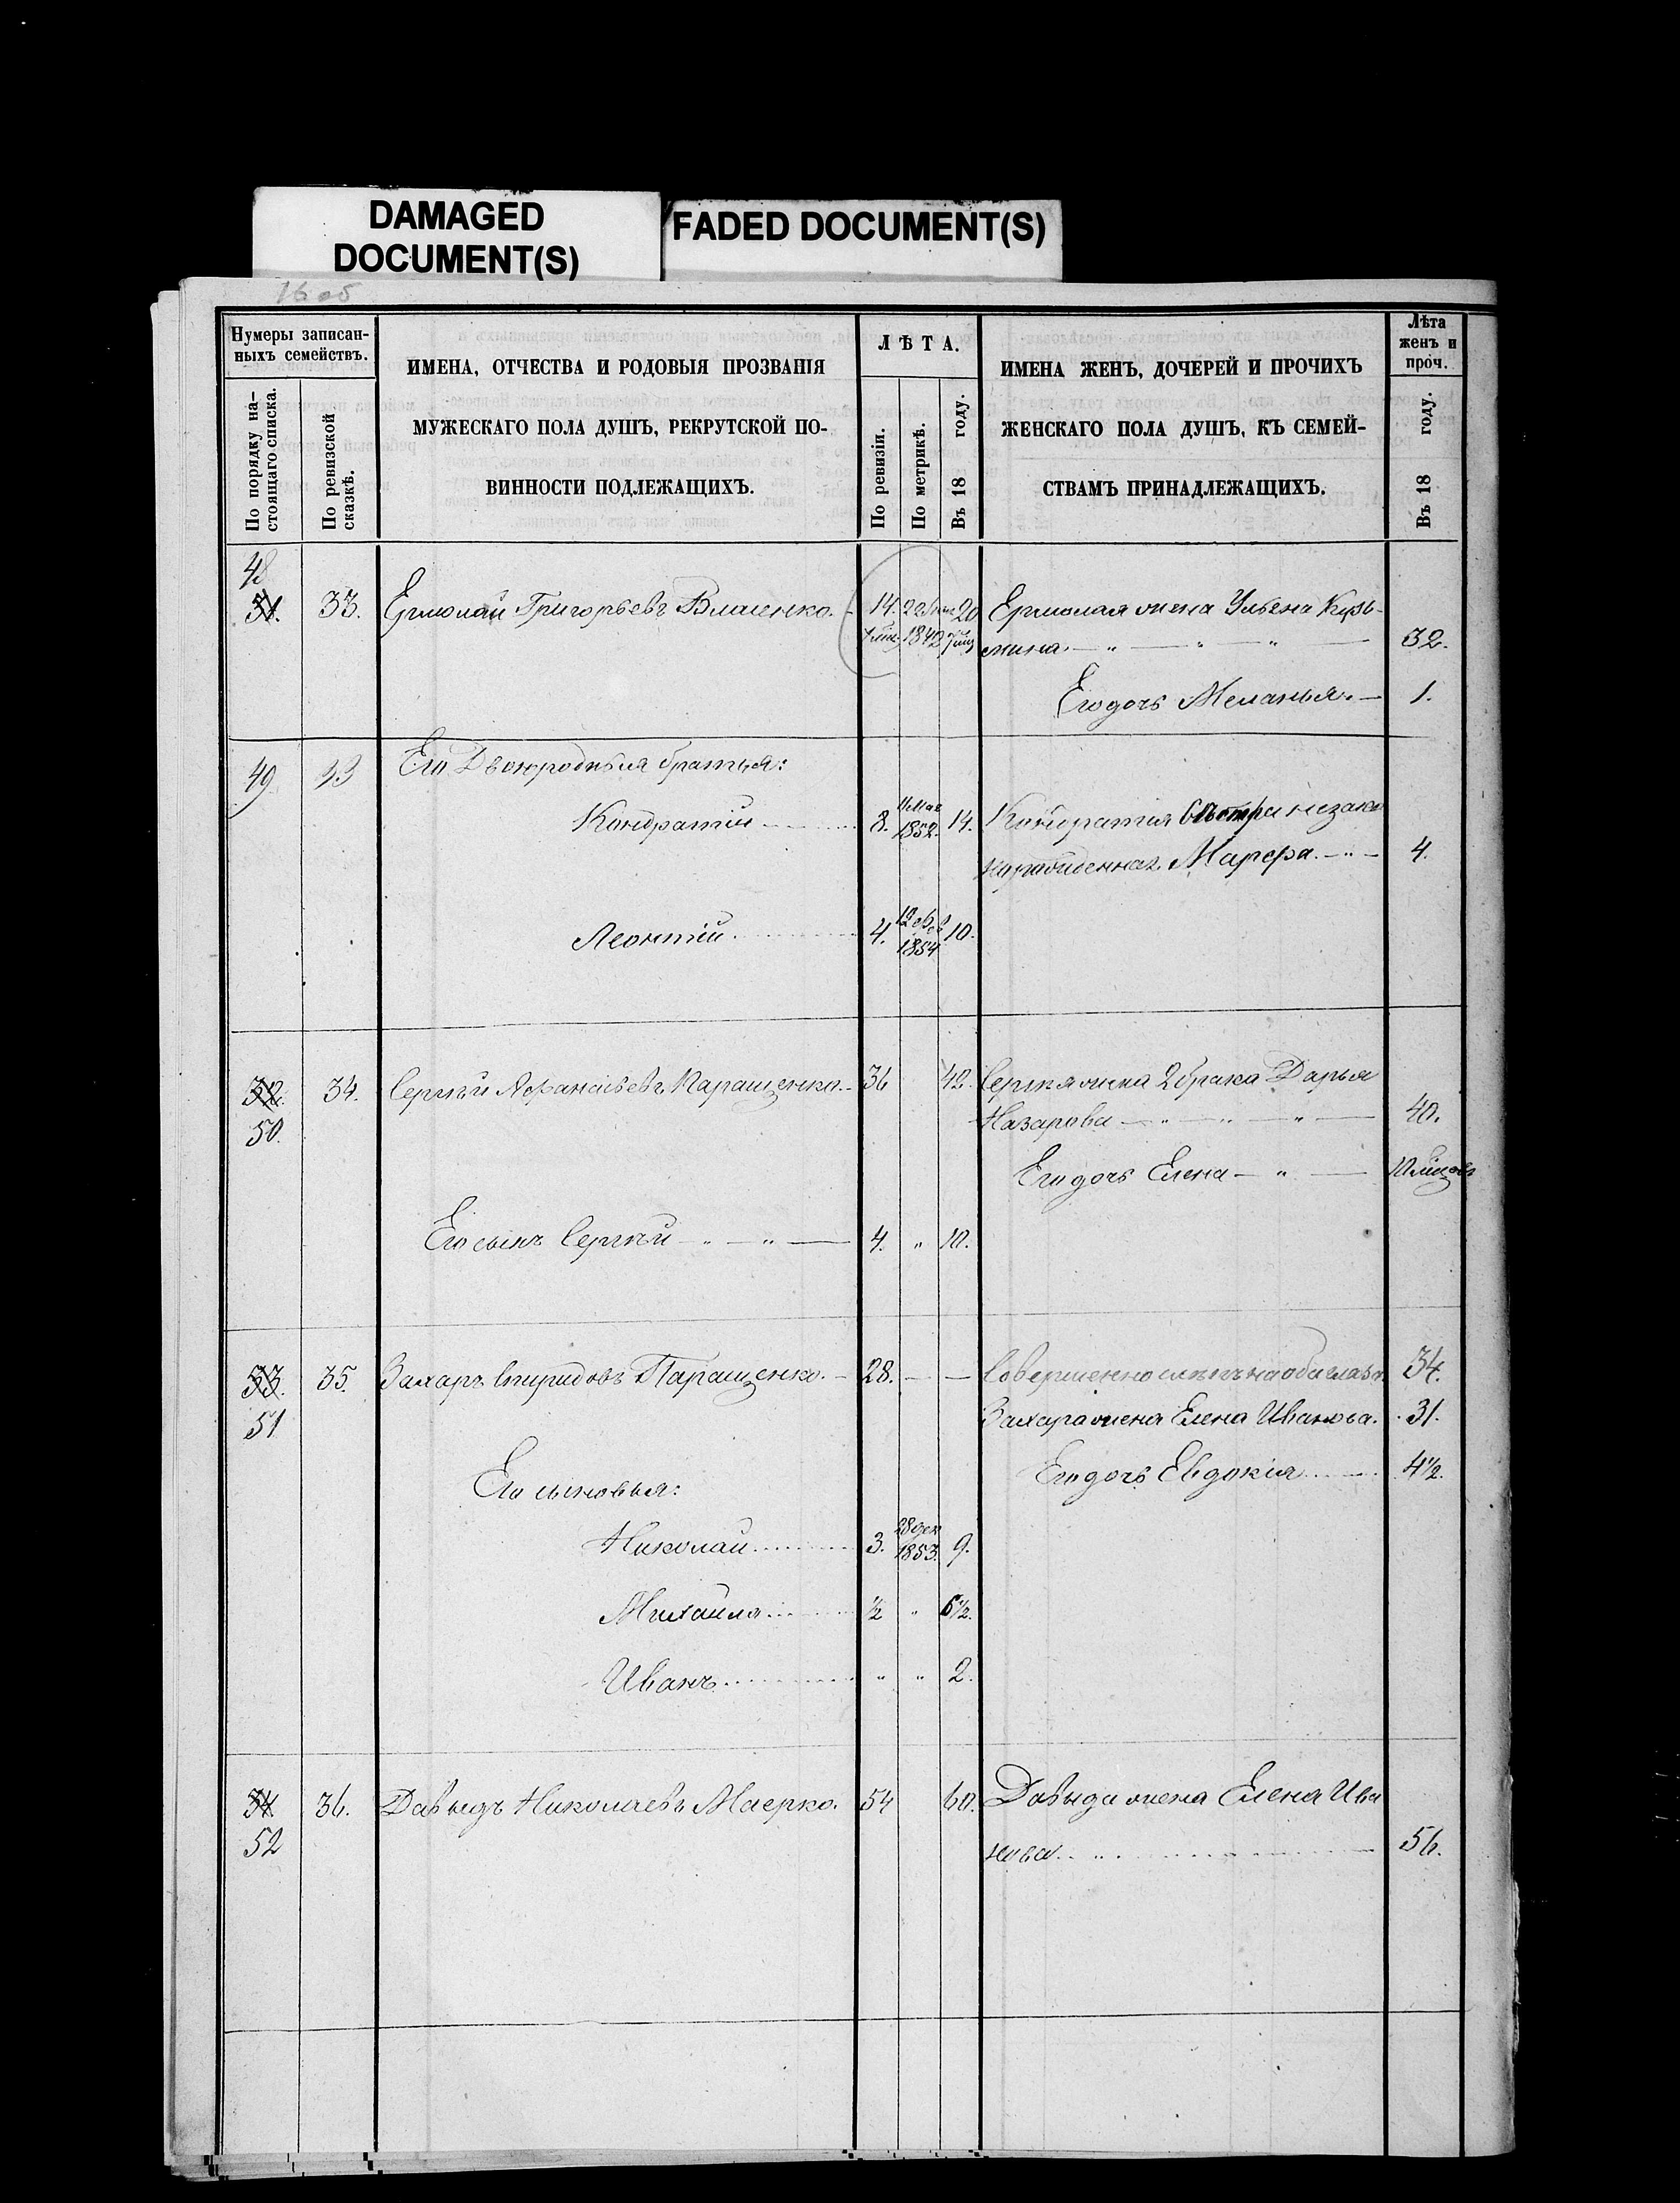 DAMAGED
DOCUMENT(S)
FADED DOCUMENT(S)
16 об
Нумеры записан-
ныхъ семействъ.
По порядку на-
стоящаго списка.
По ревизской
сказкѣ.
ИМЕНА, ОТЧЕСТВА И РОДОВЫЯ ПРОЗВАНІЯ
МУЖЕСКАГО ПОЛА ДУШЪ, РЕКРУТСКОЙ ПО-
ВИННОСТИ ПОДЛЕЖАЩИХЪ.
ЛѢТА.
По ревизіи.
По метрикѣ.
Въ 18 году.
ИМЕНА ЖЕНЪ, ДОЧЕРЕЙ И ПРОЧИХЪ
ЖЕНСКАГО ПОЛА ДУШЪ, КЪ СЕМЕЙ-
СТВАМЪ ПРИНАДЛЕЖАЩИХЪ.
Лѣта
женъ и
проч.
Въ 18 году.
48
31. 33. Ермолай Григорьевъ Власенко. 14. 22 20 Ермолая жена Ульена Кузь-
1842 мина. 32.
Его дочь Меланья. 1.
49 33 Его Двоюродныя братья:
Кондратій 8. 11 Мая 1852. 14. Кондратія сестра незако
норожденная Марфа. 4.
Леонтій. 4. 12 1854 10.
32. 34. Сергѣй Афанасьевъ Паращенко. 36 42. Сергѣя жена 2 брака Дарья
50. Назарова 40.
Его дочь Елена 10 мѣцовъ
Его сынъ Сергѣй 4. " 10.
33. 35. Захаръ Спиридовъ Паращенко. 28. Совершенно слѣпъ на оба глаза. 34.
51 Захара жена Елена Иванова. 31.
Его дочь Евдокія 4½.
Его сыновья:
Николай 3. 28 1853. 9.
Михайла ½ " 6½.
Иванъ " " 2.
34 36. Давыдъ Николаевъ Маерко. 54 60. Давыда жена Елена Ива
52 нова 56.